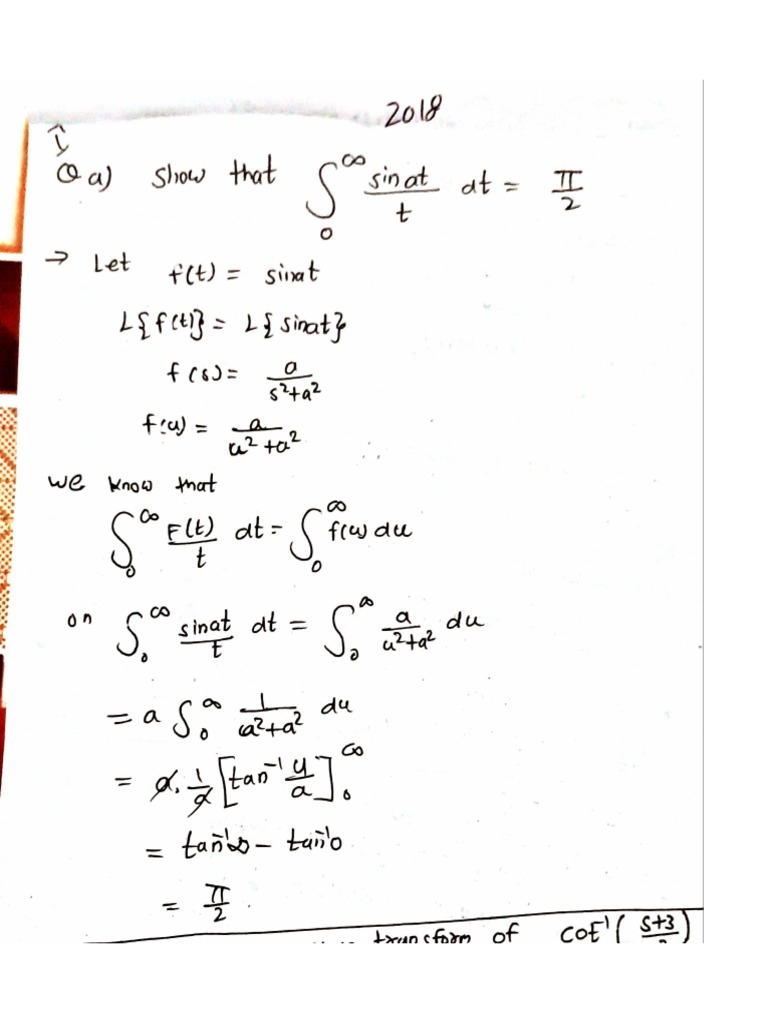 2018
Q a) Show that ∫₀^∞ sinat/t dt = π/2
→ Let f(t) = sinat
L{f(t)} = L{sinat}
f(s) = a/s²+a²
f(u) = a/u²+a²
we know that
∫₀^∞ F(t)/t dt = ∫₀^∞ f(u) du
on ∫₀^∞ sinat/t dt = ∫₀^∞ a/u²+a² du
= a ∫₀^∞ 1/u²+a² du
= a. 1/a [tan⁻¹ u/a]₀^∞
= tan⁻¹∞ – tan⁻¹0
= π/2.
transform of cot⁻¹( s+3/